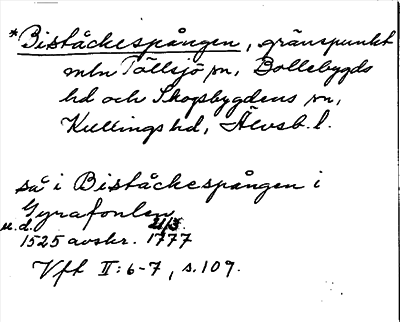 *Biståckespången, gränspunkt
mln Töllsjö sn, Bollebygds
hd och Skogsbygdens sn,
Kullings hd, Älvsb. l.
så i Biståckespången i
Gyrafonlen
u.d. 21/3.
1525 avskr. 1777
Vft II:6-7, s.109.